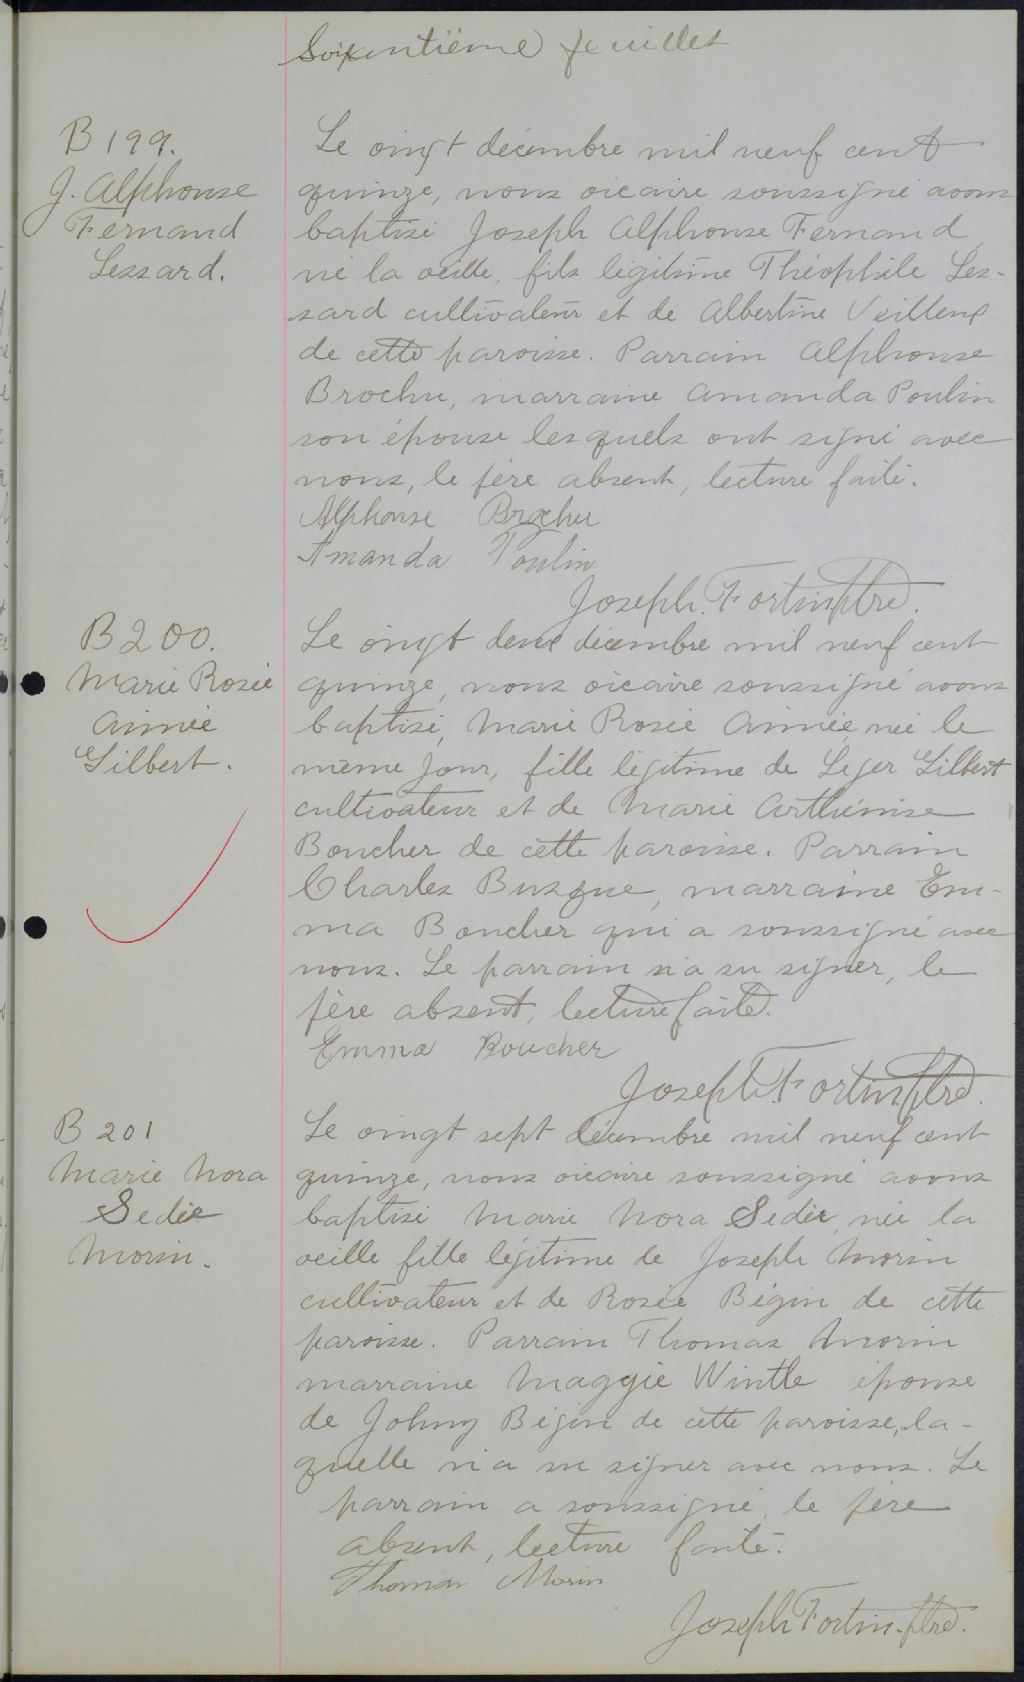 Soixantième feuillet
B 199.
J. Alphonse
Fernand
Lessard.
Le vingt décembre mil neuf cent
quinze, nous vicaire soussigné avons
baptisé Joseph Alphonse Fernand,
né la veille, fils légitime Théophile Les-
sard cultivateur et de Albertine Veilleux
de cette paroisse. Parrain Alphonse
Brochu, marraine Amanda Poulin
son épouse lesquels ont signé avec
nous, le père absent, lecture faite.
Alphonse Brochu
Amanda Poulin
Joseph Fortin ptre.
B 200.
Marie Rosée
Aimée
Gilbert.
Le vingt deux décembre mil neuf cent
quinze, nous vicaire soussigné avons
baptisé, Marie Rosée Aimée, née le
même jour, fille légitime de Léger Gilbert
cultivateur et de Marie Arthémise
Boucher de cette paroisse. Parrain
Charles Busque, marraine Em-
ma Boucher qui a soussigné avec
nous. Le parrain n'a su signer, le
père absent, lecture faite.
Emma Boucher
Joseph Fortin ptre.
B 201
Marie Nora
Sedée
Morin.
Le vingt sept décembre mil neuf cent
quinze, nous vicaire soussigné avons
baptisé Marie Nora Sedée, née la
veille fille légitime de Joseph Morin
cultivateur et de Rosée Bégin de cette
paroisse. Parrain Thomas Morin
marraine Maggie Wintle épouse
de Johny Bégin de cette paroisse, la-
quelle n'a su signer avec nous. Le
parrain a soussigné, le père
absent, lecture faite.
Thomas Morin
Joseph Fortin. ptre.